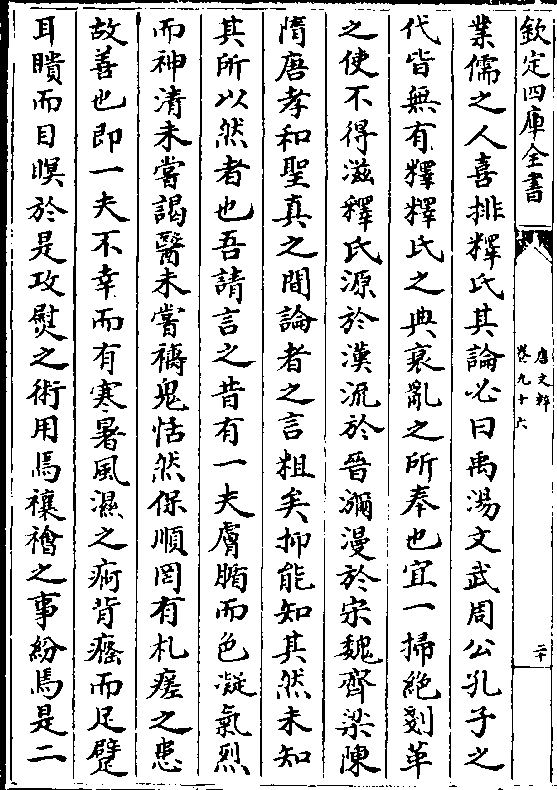 欽定四庫全書
唐文粹
卷九十六
二十
業儒之人喜排釋氏其論必曰禹湯文武周公孔子之
代皆無有釋釋氏之興衰亂之所奉也宜一掃絶剗革
之使不得滋釋氏源於漢流於晉瀰漫於宋魏齊梁陳
隋唐孝和聖真之間論者之言粗矣抑能知其然未知
其所以然者也吾請言之昔有一夫膚腯而色凝氣烈
而神清未嘗謁醫未嘗禱鬼恬然保順罔有札瘥之患
故善也即一夫不幸而有寒暑風濕之痾背癃而足躄
耳聵而目瞑於是攻熨之術用焉禳禬之事紛焉是二